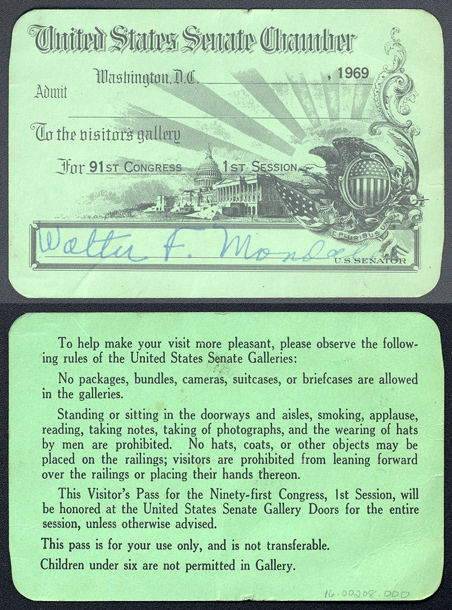 United States Senate Chamber
Washington, D.C. , 1969
Admit
To the visitors gallery
For 91ST CONGRESS 1ST SESSION
E PLURIBUS
Walter F. Mondale
U.S. SENATOR
To help make your visit more pleasant, please observe the follow-
ing rules of the United States Senate Galleries:
No packages, bundles, cameras, suitcases, or briefcases are allowed
in the galleries.
Standing or sitting in the doorways and aisles, smoking, applause,
reading, taking notes, taking of photographs, and the wearing of hats
by men are prohibited. No hats, coats, or other objects may be
placed on the railings; visitors are prohibited from leaning forward
over the railings or placing their hands thereon.
This Visitor's Pass for the Ninety-first Congress, 1st Session, will
be honored at the United States Senate Gallery Doors for the entire
session, unless otherwise advised.
This pass is for your use only, and is not transferable.
Children under six are not permitted in Gallery.
16.00208.000